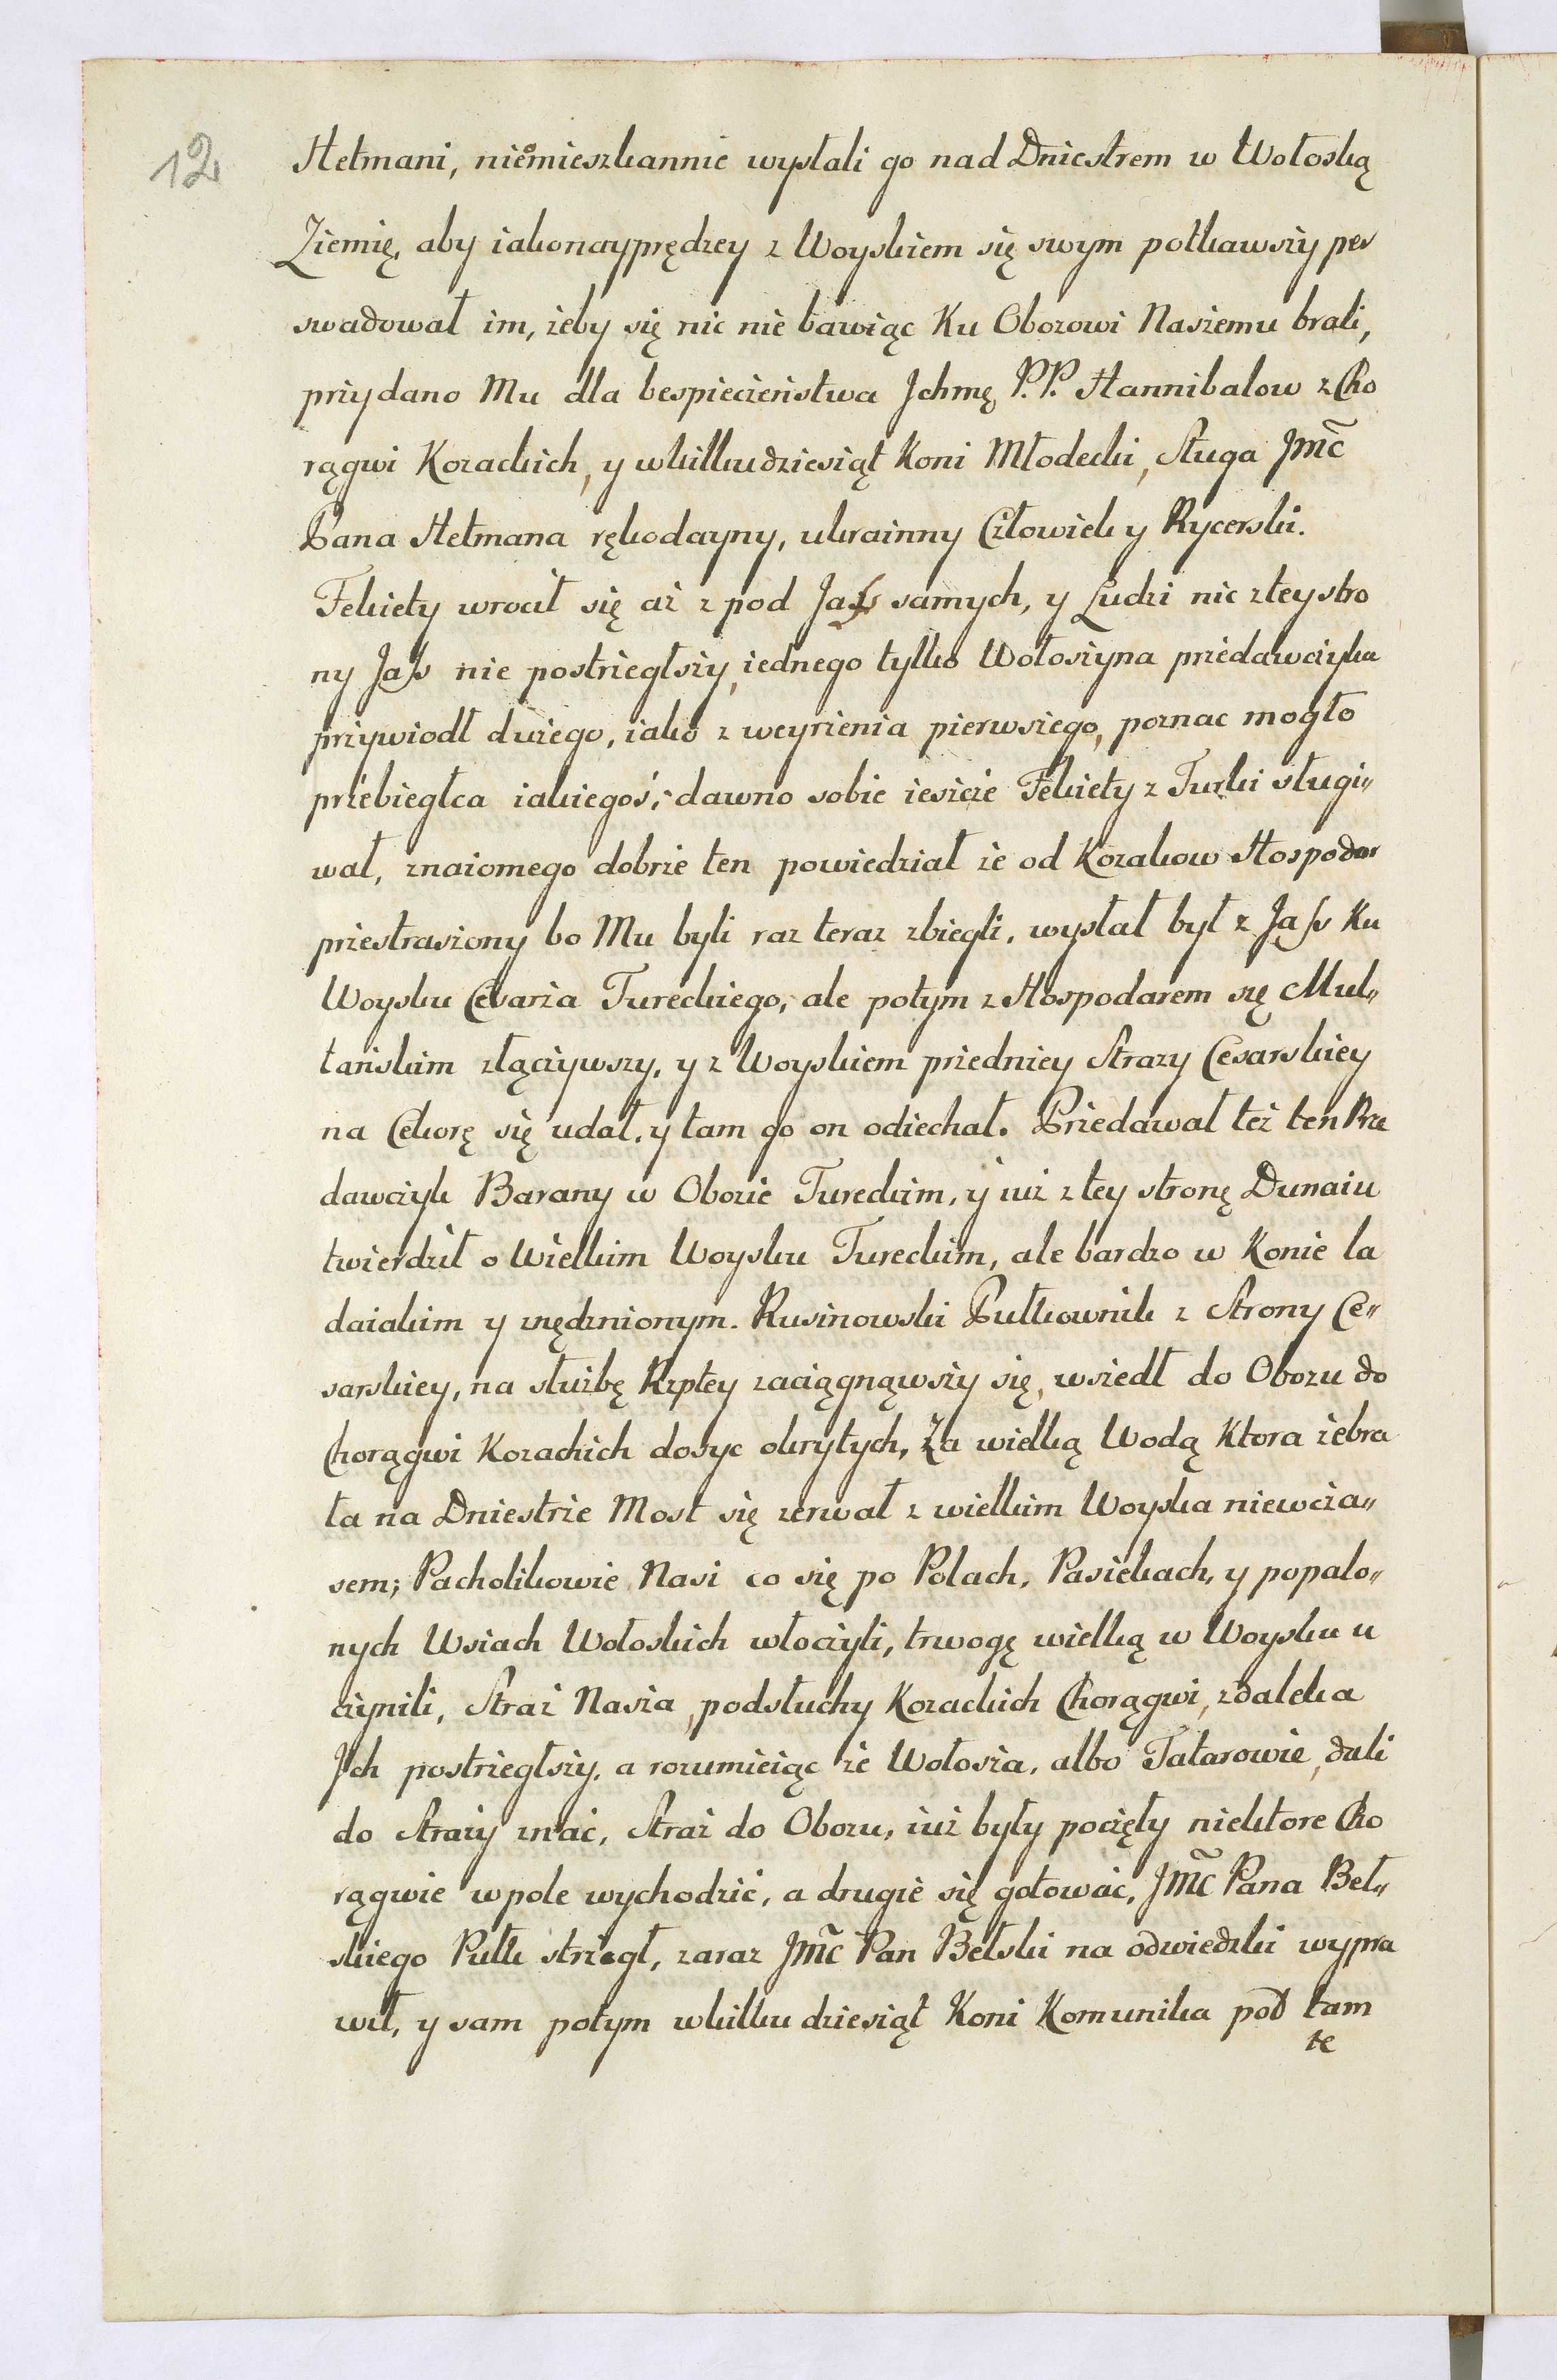 12
Hetmani, niemieszkannie wysłali go nad Dniestrem w Wołoską
Ziemię, aby iakonayprędzey z Woyskiem się swym potkawszy per
swadował im, żeby się nic nie bawiąc Ku Obozowi Naszemu brali,
przydano Mu dla bespieczeństwa Jchmę P.P. Hannibalow z Cho
rągwi Kozackich, y wkilkudziesiąt Koni Młodecki, Sługa JMC̃
Pana Hetmana rękodayny, ukrainny Człowiek y Rycerski.
Fekiety wrocił się aż z pod Jass samych, y Ludzi nic zteystro
ny Jass nie postrzegłszy, iednego tylko Wołoszyna przedawczyka
przywiodł dużego, iako z weyrzenia pierwszego, poznac mogło
przebiegłca iakiegoś; dawno sobie ieszcze Fekiety z Turki sługi„
wał, znaiomego dobrze ten powiedział że od Kozakow Hospodar
przestraszony bo Mu byli raz teraz zbiegli, wysłał był z Jass Ku
Woysku Cesarza Tureckiego, ale potym z Hospodarem się Mul„
tańskim złączywszy, y z Woyskiem przedniey Strazy Cesarskiey
na Cekorę się udał, y tam go on odiechał. Przedawał też ten Prze
dawczyk Barany w Obozie Tureckim, y iuż z tey stronę Dunaiu
twierdził o Wielkim Woysku Tureckim, ale bardzo w Konie la
daiakim y znędznionym. Rusinowski Pułkownik z Strony Ce„
sarskiey, na służbę Rzptey zaciągnąwszy się, wszedł do Obozu do
Chorągwi Kozackich dosyc okrytych, Za wielką Wodą Ktora zebra
ła na Dniestrze Most się zerwał z wielkim Woyska niewcza„
sem; Pacholikowie Nasi co się po Polach, Pasiekach, y popalo„
nych Wsiach Wołoskich włoczyli, trwogę wielką w Woysku u
czynili, Straż Nasza, podsłuchy Kozackich Chorągwi, zdaleka
Jch postrzegłszy, a rozumieiąc że Wołosza, albo Tatarowie, dali
do Straży znać, Straż do Obozu, iuż były poczęły niektore Cho
rągwie wpole wychodzić, a drugie się gotowac, JMC̃ Pana Beł„
skiego Pułk strzegł, zaraz JMC̃ Pan Bełski na odwiedzki wypra
wił, y sam potym wkilku dziesiąt Koni Komunika pod tam
te